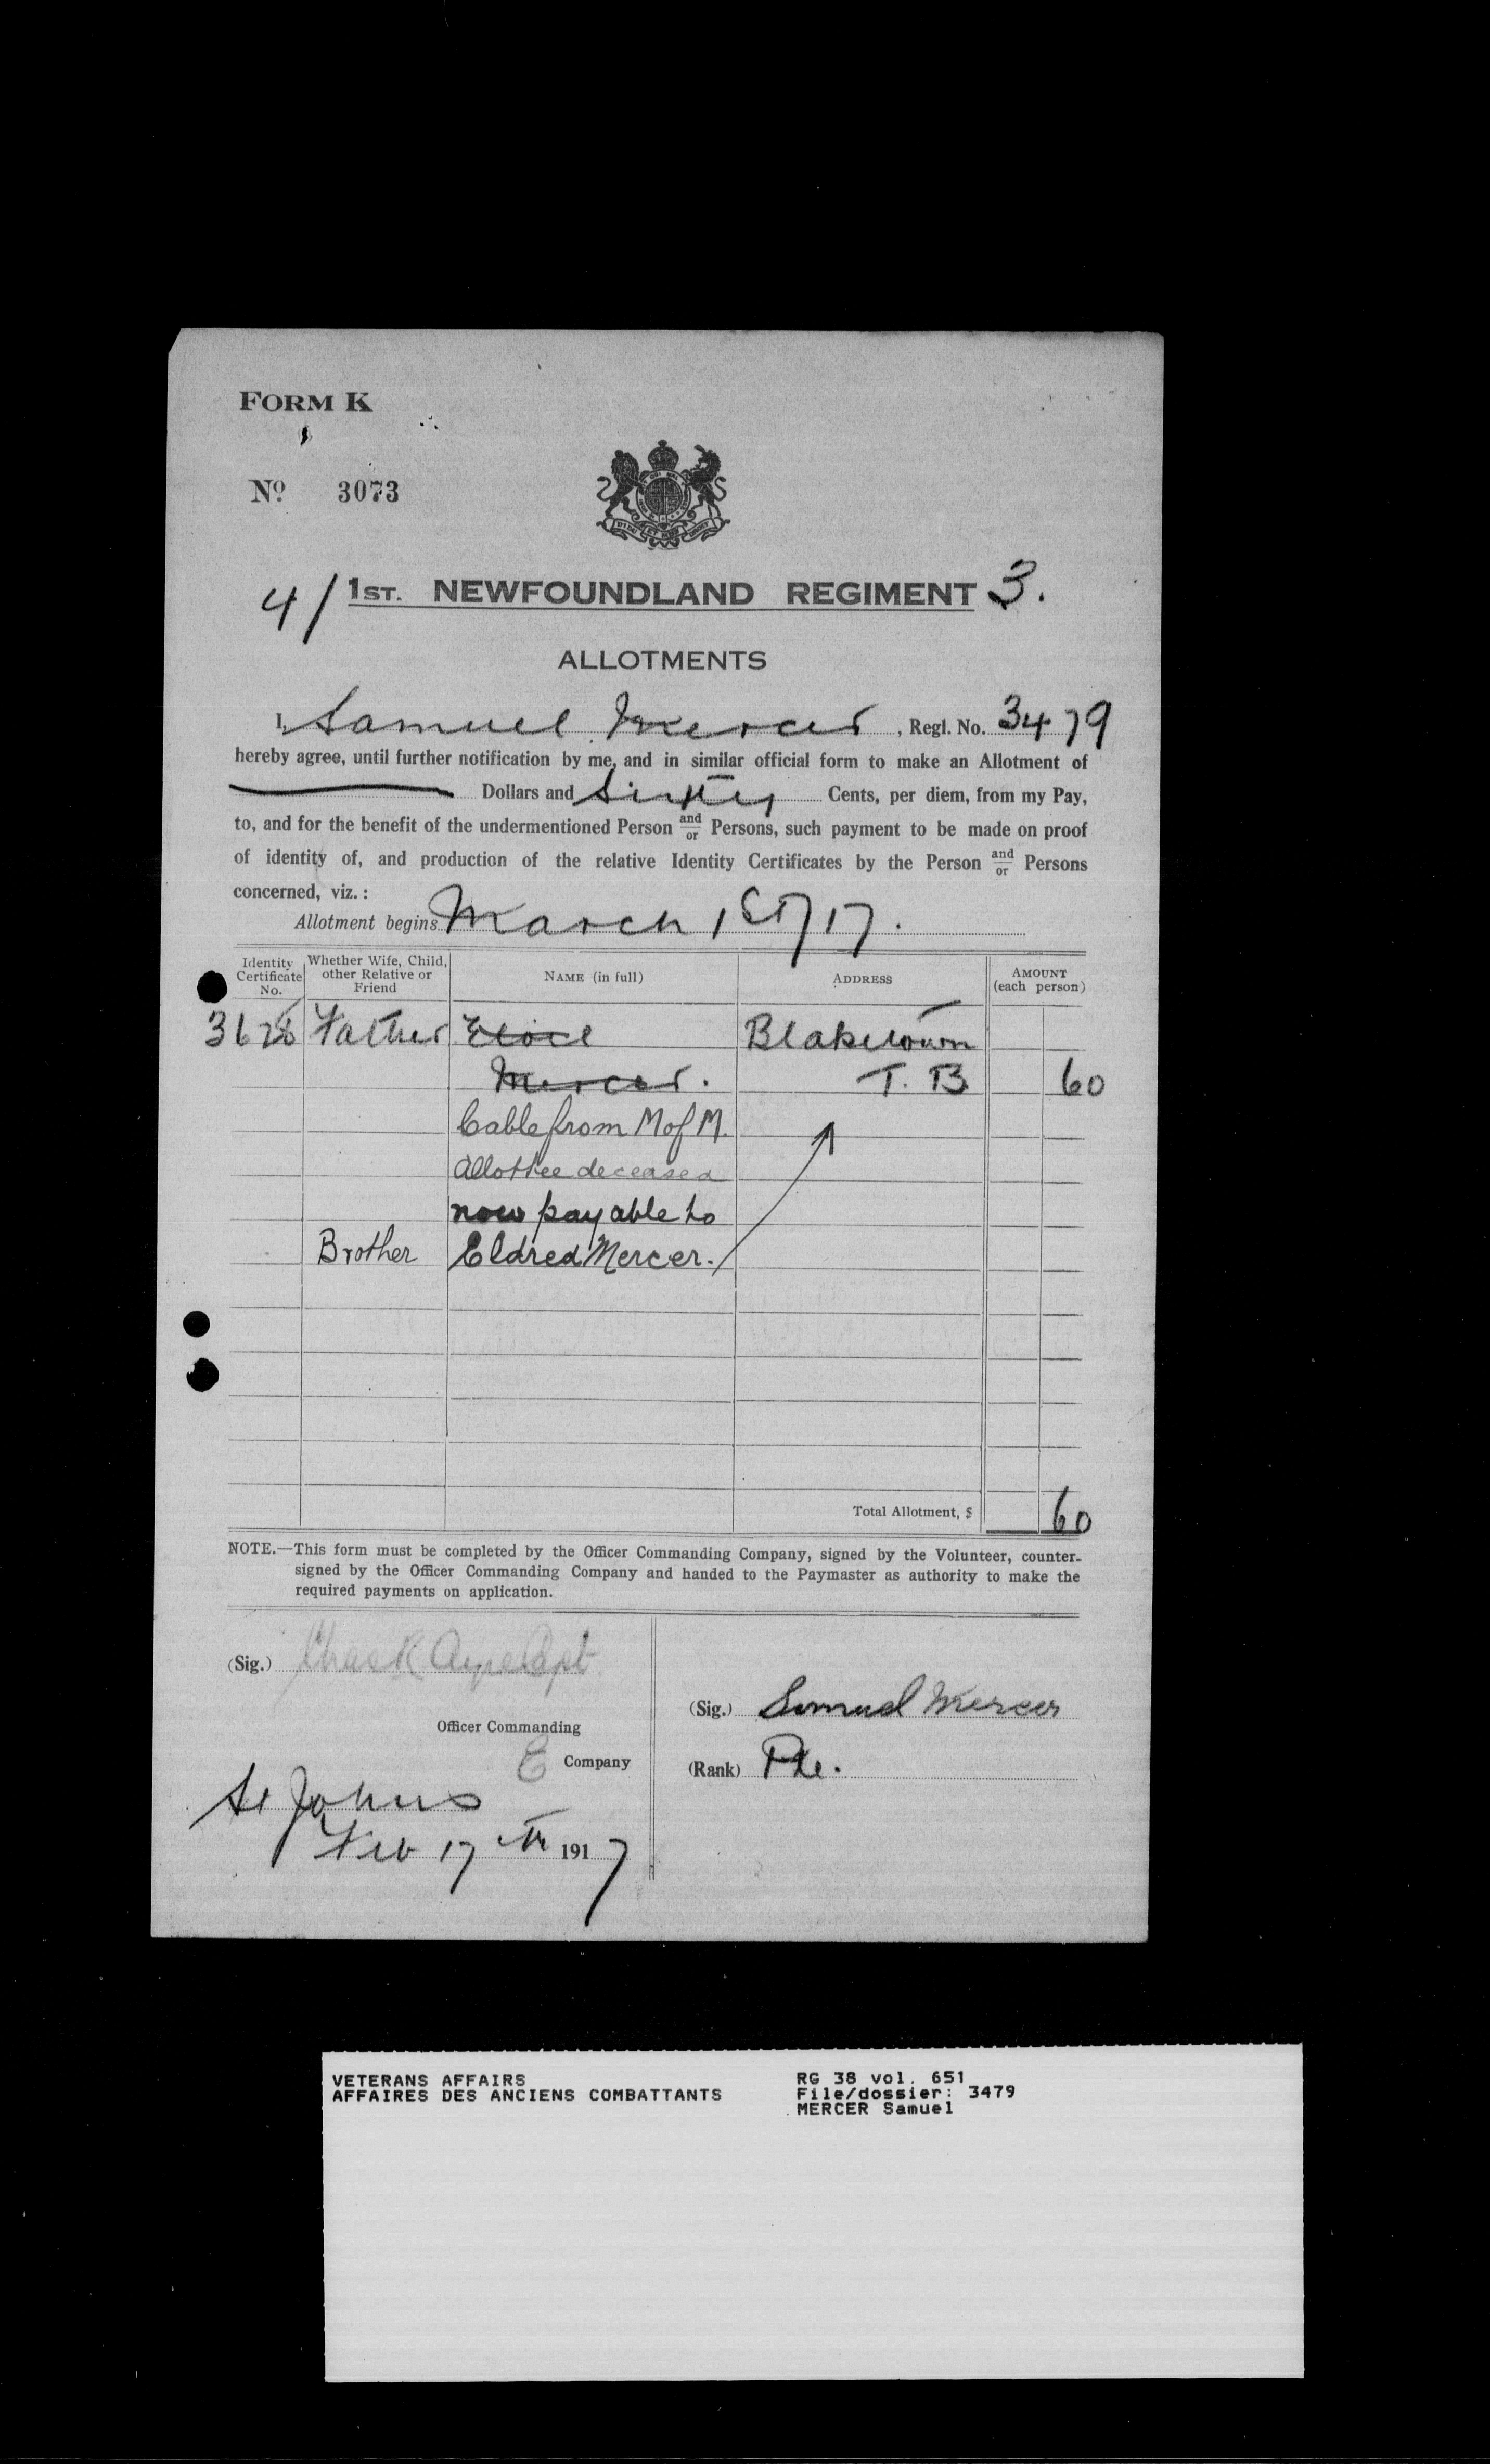 FORM K
No. 3073
4/ 1ST. NEWFOUNDLAND REGIMENT 3.
ALLOTMENTS
I, Samuel Mercer, Regl. No. 3479
hereby agree, until further notification by me, and in similar official form to make an Allotment of
Dollars and Sixty Cents, per diem, from my Pay,
to, and for the benefit of the undermentioned Person and/or Persons, such payment to be made on proof
of identity of, and production of the relative Identity Certificates by the Person and/or Persons
concerned, viz.:
Allotment begins March 1st/17.
Identity Certificate No. Whether Wife, Child, other Relative or Friend NAME (in full) ADDRESS AMOUNT (each person)
3628 Father Blaketown
Mercer. T. B. 60
Cable from M of M.
Allottee deceased
now payable to
Brother Eldred Mercer.
Total Allotment, $ 60
NOTE.—This form must be completed by the Officer Commanding Company, signed by the Volunteer, counter-
signed by the Officer Commanding Company and handed to the Paymaster as authority to make the
required payments on application.
(Sig.) Chas R Ayre Capt
Officer Commanding
E Company
(Sig.) Samuel Mercer
(Rank) Pte.
St Johns
Feb 17th 1917
VETERANS AFFAIRS
AFFAIRES DES ANCIENS COMBATTANTS
RG 38 vol. 651
File/dossier: 3479
MERCER Samuel